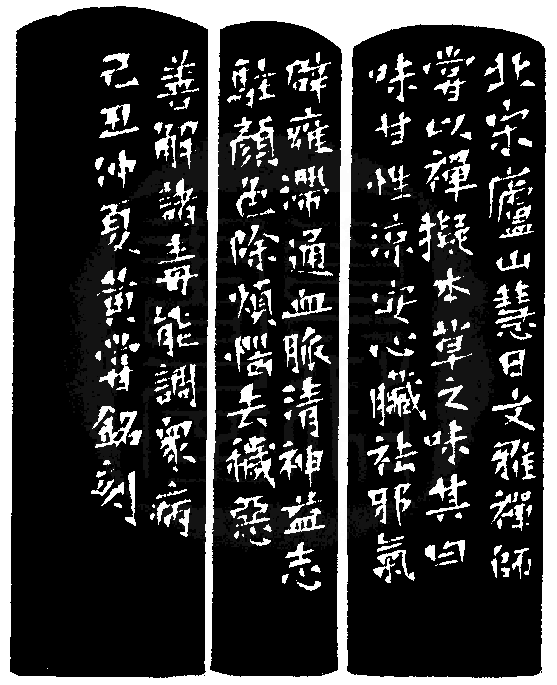 北宋廬山慧日文雅禪師
嘗以禪擬本草之味其曰
味甘性涼安心臟祛邪氣
闢壅滯通血脈清神益志
駐顏色除煩惱去穢惡
善解諸毒能調眾病
己丑仲夏黃嘗銘刻